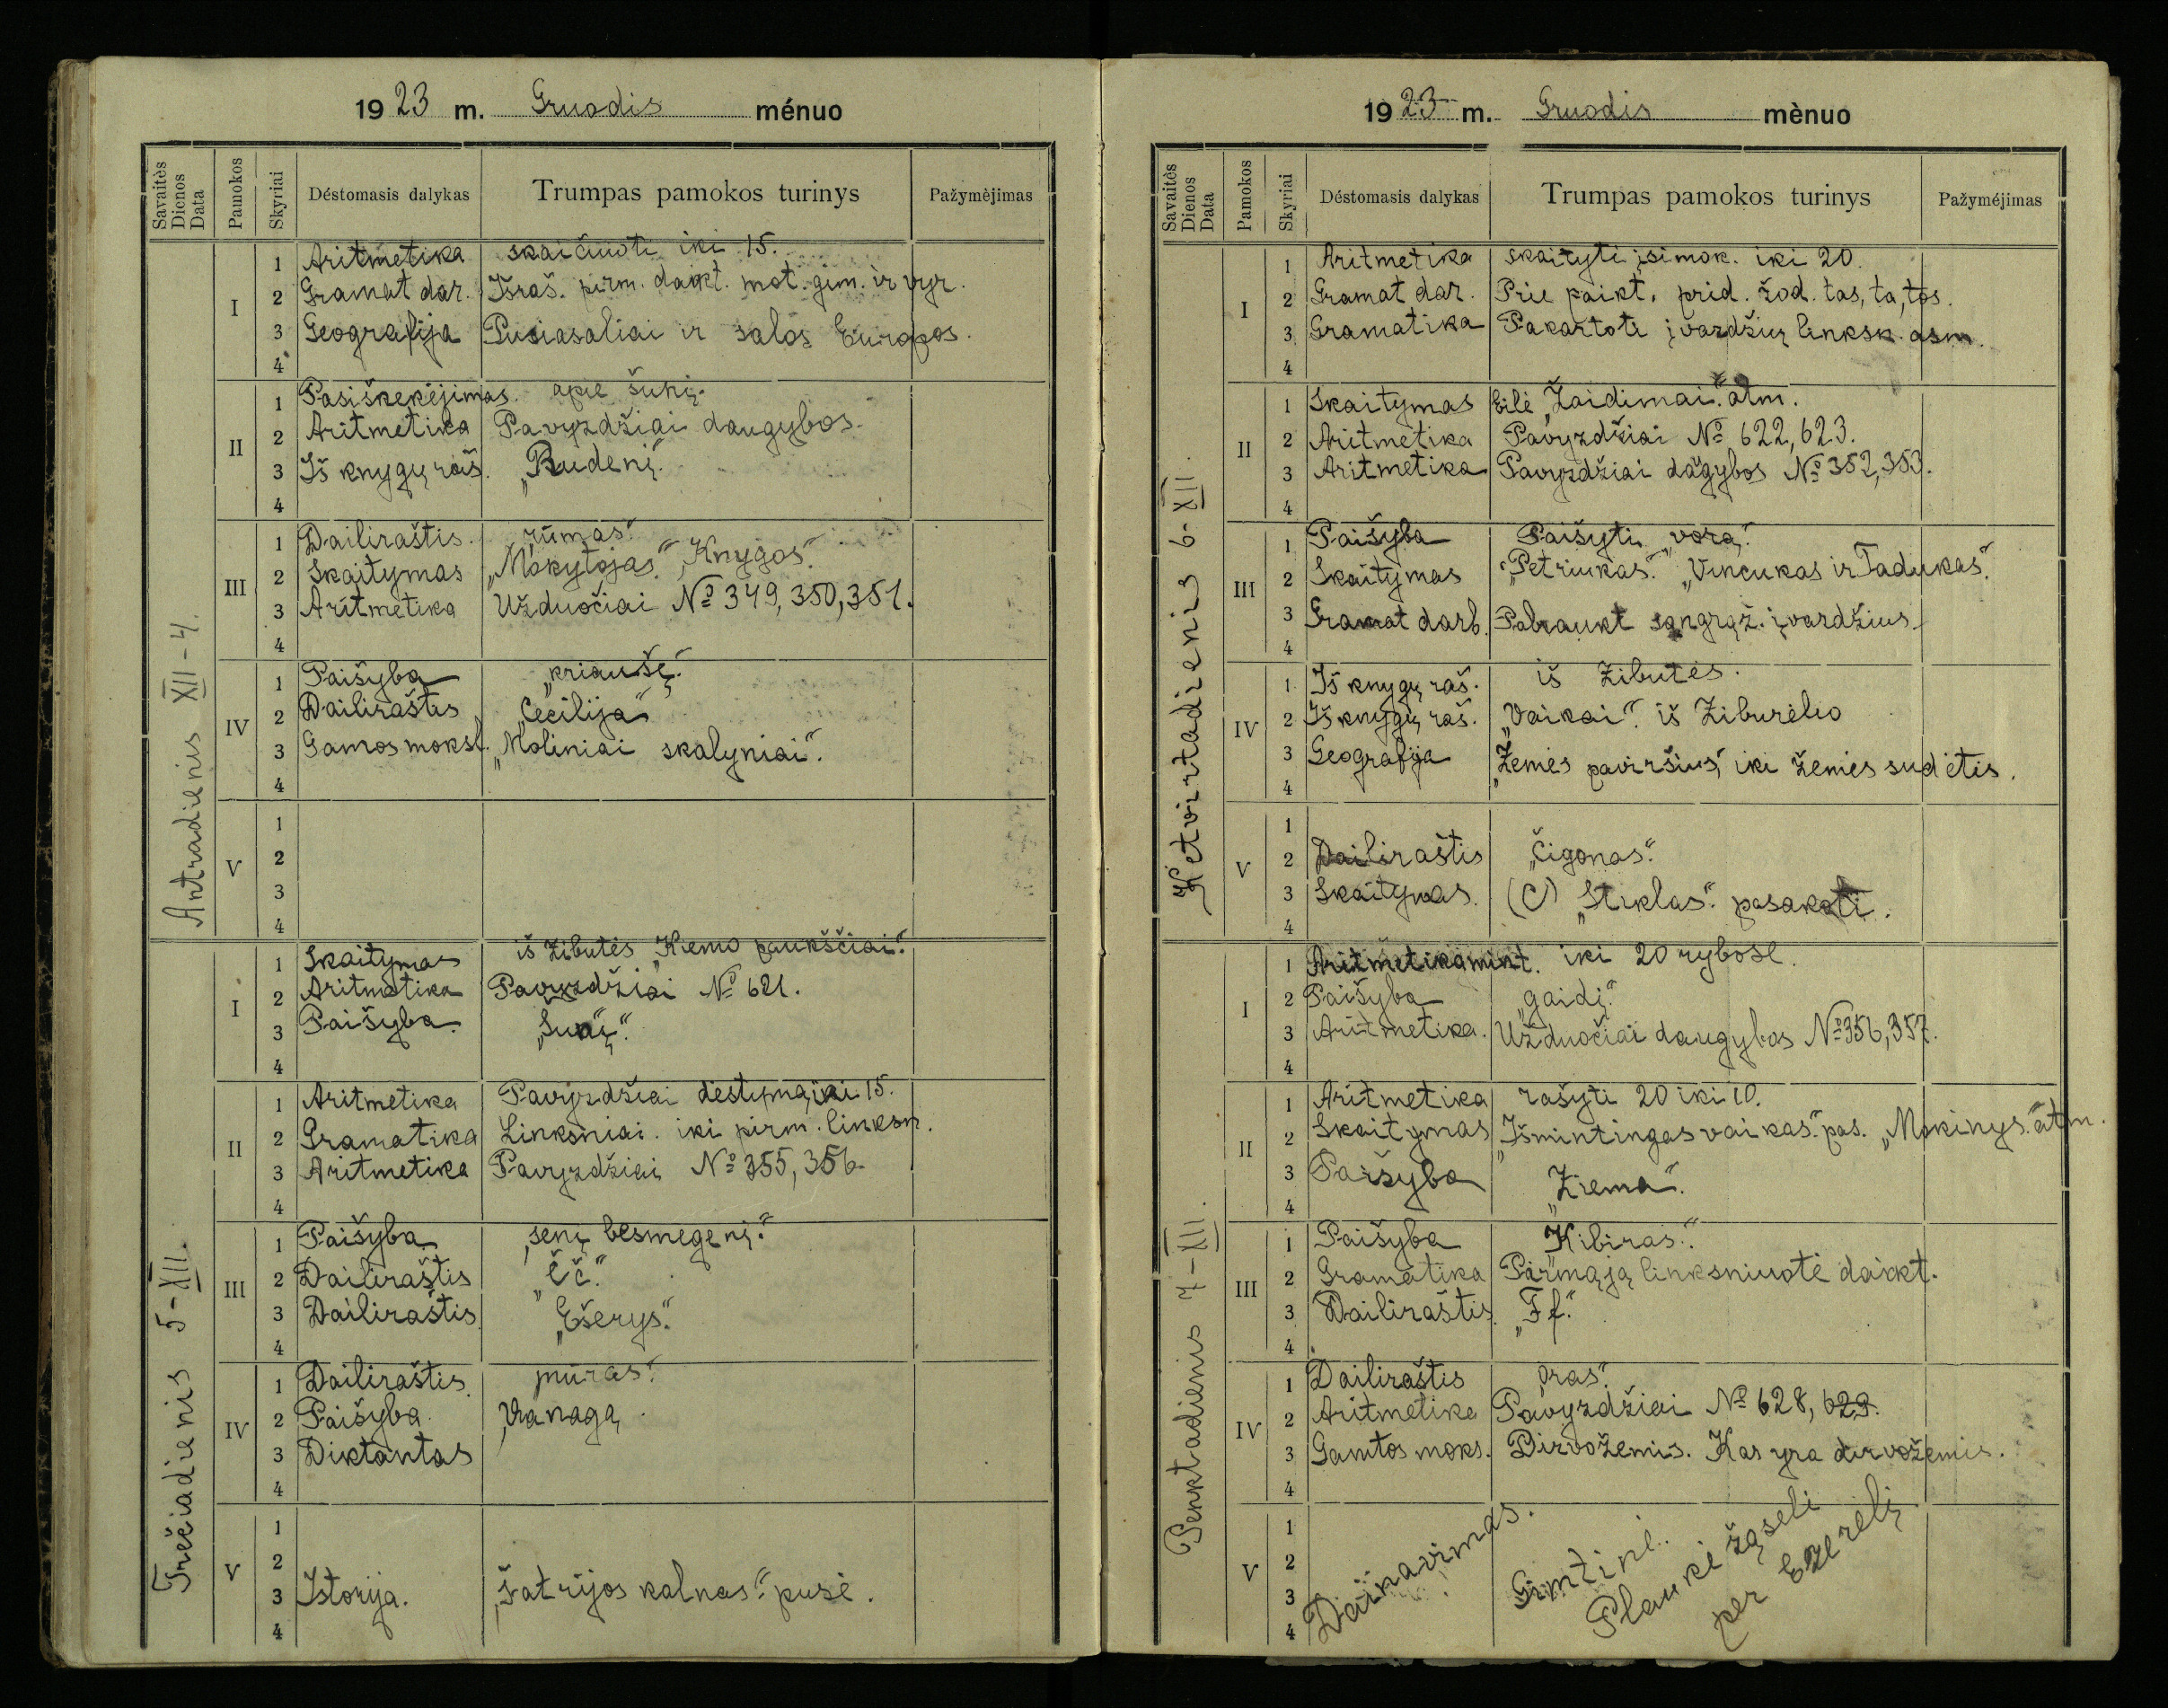 1923 m. Gruodis ménuo
Savaitės Dienos Data Pamokos Skyriai Déstomasis dalykas Trumpas pamokos turinys Pažymėjimas
Antradienis XII-4.
I
1 Aritmetika skaičiuoti iki 15.
2 Gramat dar. Išraš. pirm. daikt. mot. gim. ir vyr.
3 Geografija Pusiasaliai ir salos Europos.
4
II
1 Pasišnekėjimas. apie šunį.
2 Aritmetika Pavyzdžiai daugybos.
3 Iš knygų raš. „Rudenį“.
4
III
1 Dailiraštis. „rūmas“.
2 Skaitymas „Mokytojas“. „Knygos“.
3 Aritmetika Užduočiai № 349, 350, 351.
4
IV
1 Paišyba „kriaušę“.
2 Dailiraštis „Cecilija“
3 Gamos moksl. „Moliniai skalyniai“.
4
V
1
2
3
4
Trečiadienis 5-XII.
I
1 Skaitymas iš Žibutės „Kiemo paukščiai“.
2 Aritmetika Pavyzdžiai № 621.
3 Paišyba. „Sunį“.
4
II
1 Aritmetika Pavyzdžiai iki 15.
2 Gramatika Linksniai. iki pirm. linksn.
3 Aritmetika Pavyzdžiai № 355, 356.
4
III
1 Paišyba „senį besmegenį“.
2 Dailiraštis „Čč“.
3 Dailiraštis. „Ešerys“.
4
IV
1 Dailiraštis. pūras“.
2 Paišyba. „Vanagą.
3 Diktantas
4
V
1
2
3 Istorija. „Šatrijos kalnas“. pusė.
4
1923 m. Gruodis mènuo
Savaitės Dienos Data Pamokos Skyriai Déstomasis dalykas Trumpas pamokos turinys Pažyméjimas
Ketvirtadienis 6-XII.
I
1 Aritmetika skaityti įsimok. iki 20.
2 Gramat dar. Prie paikt. prid. žod. tas, ta, tos.
3 Gramatika Pakartoti įvardžių linksn. asm.
4
II
1 Skaitymas Eilė „Žaidimai“. atm.
2 Aritmetika Pavyzdžiai № 622, 623.
3 Aritmetika Pavyzdžiai dagybos № 352, 353.
4
III
1 Paišyba Paišyti „vorą“.
2 Skaitymas „Petriukas“. „Vincukas ir Tadukas“.
3 Gramat darb. Pabraukt sangrąž. įvardžius.
4
IV
1 Iš knygų raš. iš Žibutės.
2 Iš knygų raš. „Vaikai“. iš Žiburėlio
3 Geografija „Žemės paviršius“, iki žemės sudėtis.
4
V
1
2 Dailiraštis „Čigonas“.
3 Skaitymas. (C) „Stiklas“. pasakoti.
4
Penktadienis 7-XII.
I
1 Aritmetika mint. iki 20 rybose.
2 Paišyba „gaidį“.
3 Aritmetika. Užduočiai daugybos № 356, 357.
4
II
1 Aritmetika rašyti 20 iki 10.
2 Skaitymas „Išmintingas vaikas“. pas. „Mokinys“. atm.
3 Paišyba „Žiema“.
4
III
1 Paišyba „Kibiras“.
2 Gramatika Pirmąją linksniuotė daikt.
3 Dailiraštis. „Ff“.
4
IV
1 Dailiraštis „oras“.
2 Aritmetika Pavyzdžiai № 628, 629.
3 Gamtos moks. Dirvožemis. Kas yra dirvožemis.
4
V
1
2
3
4
Dainavimas.
Gimtinė.
Plaukė žąseli
per Ežerėlį